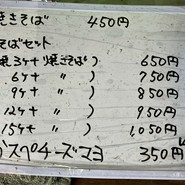 焼きそば 450円
そばセット
焼3ケ+焼きそば) 650円
6ケ+ 〃 ) 750円
9ケ+ 〃 ) 850円
12ケ+ 〃 ) 950円
15ケ+ 〃 ) 1,050円
スペチーズマヨ 350円